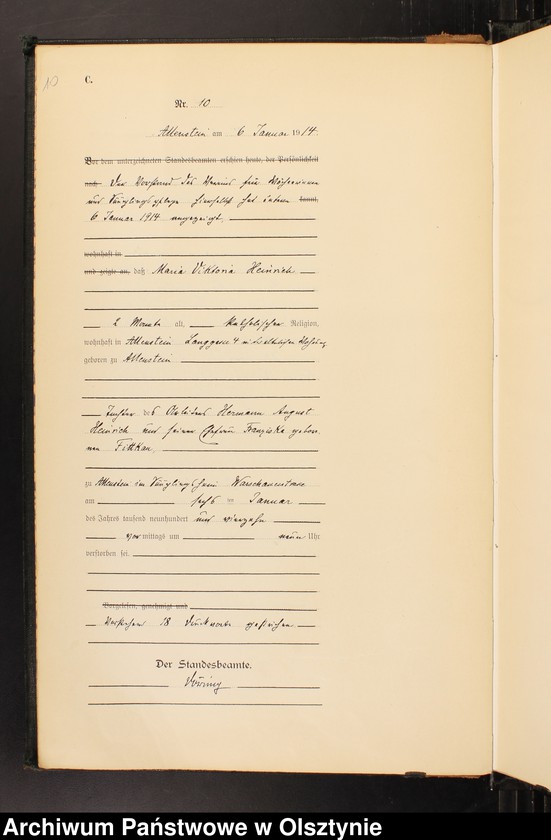 10
C.
Nr. 10
Allenstein am 6 Januar 1914.
Vor dem unterzeichneten Standesbeamten erschien heute, der Persönlichkeit
nach Der Vorstand des Vereins für Wöchnerinnen
und Säuglingspflege hierselbst hat unterm kannt,
6 Januar 1914 angezeigt,
wohnhaft in
und zeigte an, daß Maria Viktoria Heinrich
2 Monate alt, katholischer Religion,
wohnhaft in Allenstein Langgasse 4 in der elterlichen Wohnung
geboren zu Allenstein
Tochter des Hermann August
Heinrich und seiner Ehefrau Franziska gebore-
nen Fittkau,
zu Allenstein im Säuglingsheim Warschauerstrasse
am sechs ten Januar
des Jahres tausend neunhundert und vierzehn
vor mittags um neun Uhr
verstorben sei.
Vorgelesen, genehmigt und
Vorstehend 18 Druckworte gestrichen
Der Standesbeamte.
Archiwum Państwowe w Olsztynie